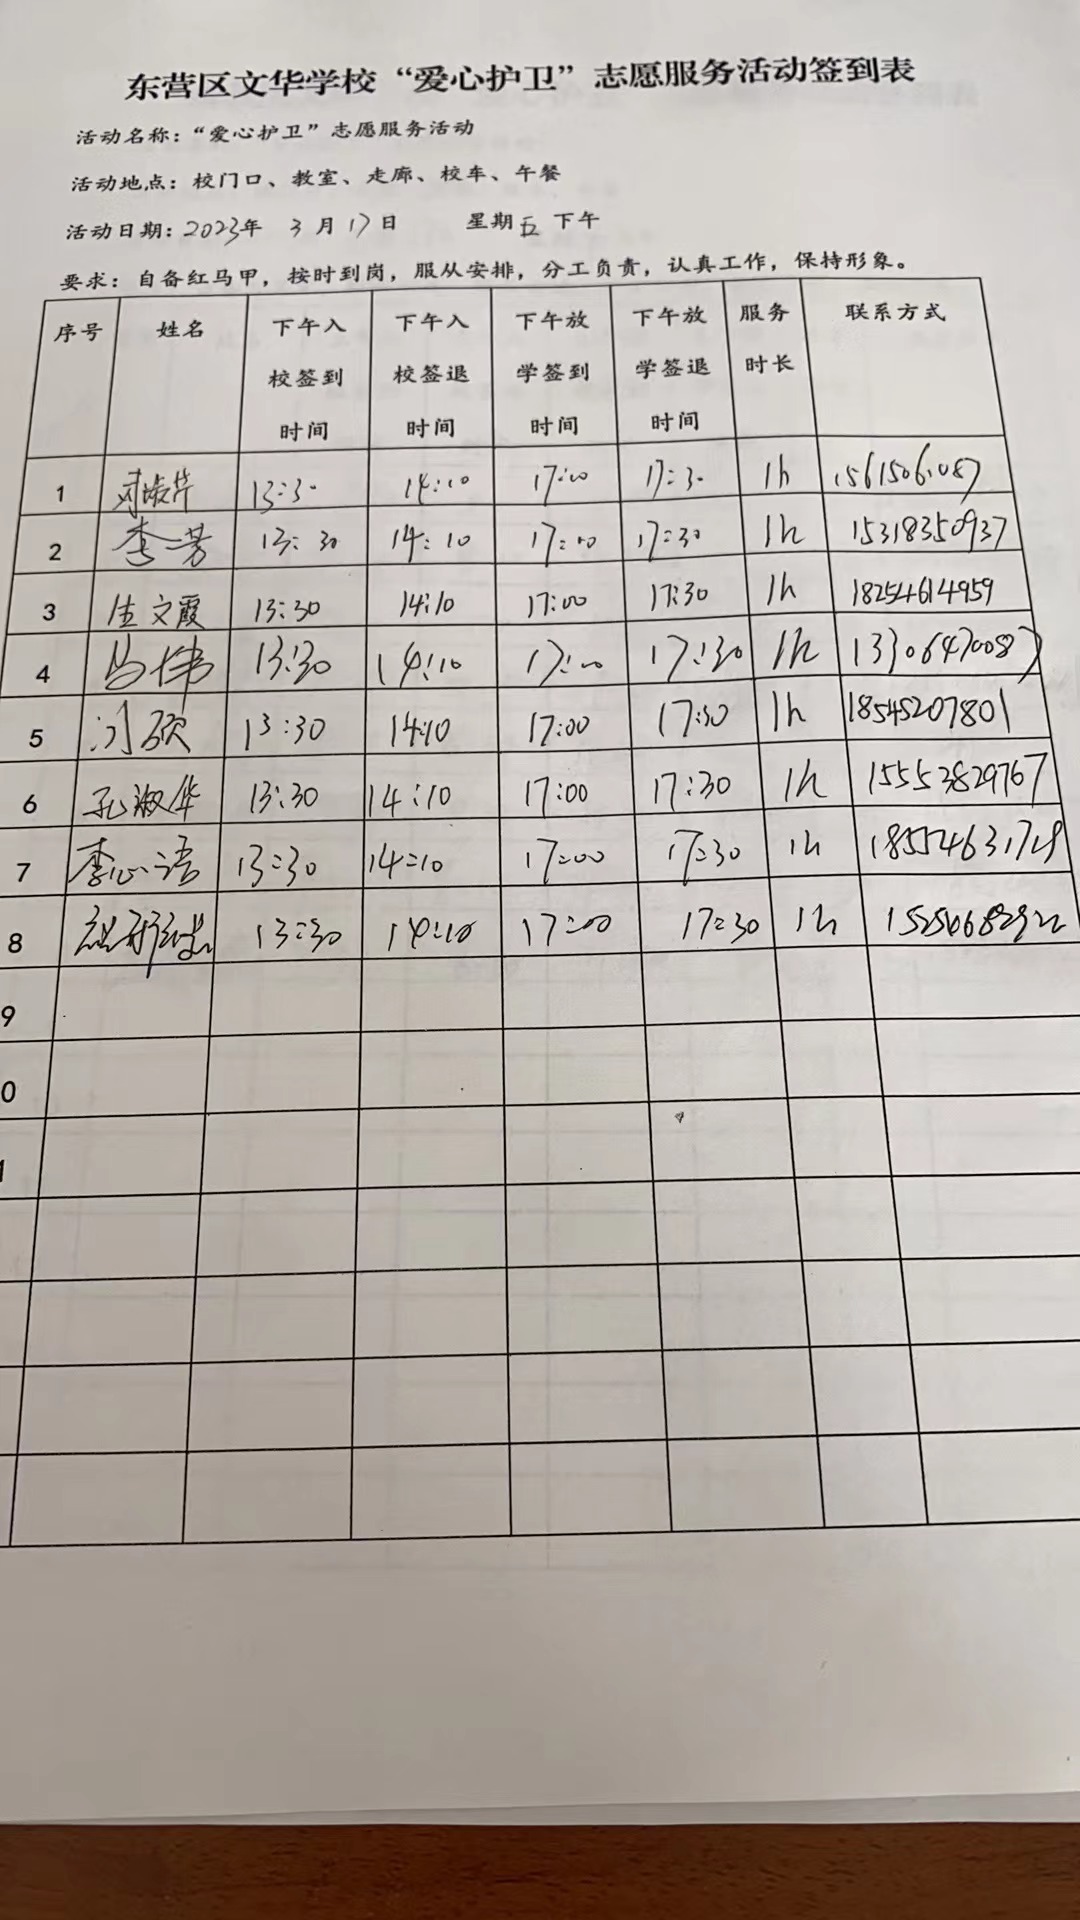 东营区文华学校“爱心护卫”志愿服务活动签到表
活动名称：“爱心护卫”志愿服务活动
活动地点：校门口、教室、走廊、校车、午餐
活动日期：2023年 3月17日 星期五 下午
要求：自备红马甲，按时到岗，服从安排，分工负责，认真工作，保持形象。
序号 姓名 下午入校签到时间 下午入校签退时间 下午放学签到时间 下午放学签退时间 服务时长 联系方式
1 13:30 14:10 17:00 17:30 1h 15615061087
2 李芳 13:30 14:10 17:00 17:30 1h 15318350937
3 生文霞 13:30 14:10 17:00 17:30 1h 18254614959
4 马伟 13:30 14:10 17:00 17:30 1h 13306470087
5 13:30 14:10 17:00 17:30 1h 18545207801
6 孔淑华 13:30 14:10 17:00 17:30 1h 15553829767
7 李心语 13:30 14:10 17:00 17:30 1h
8 13:30 14:10 17:00 17:30 1h
9
0
1